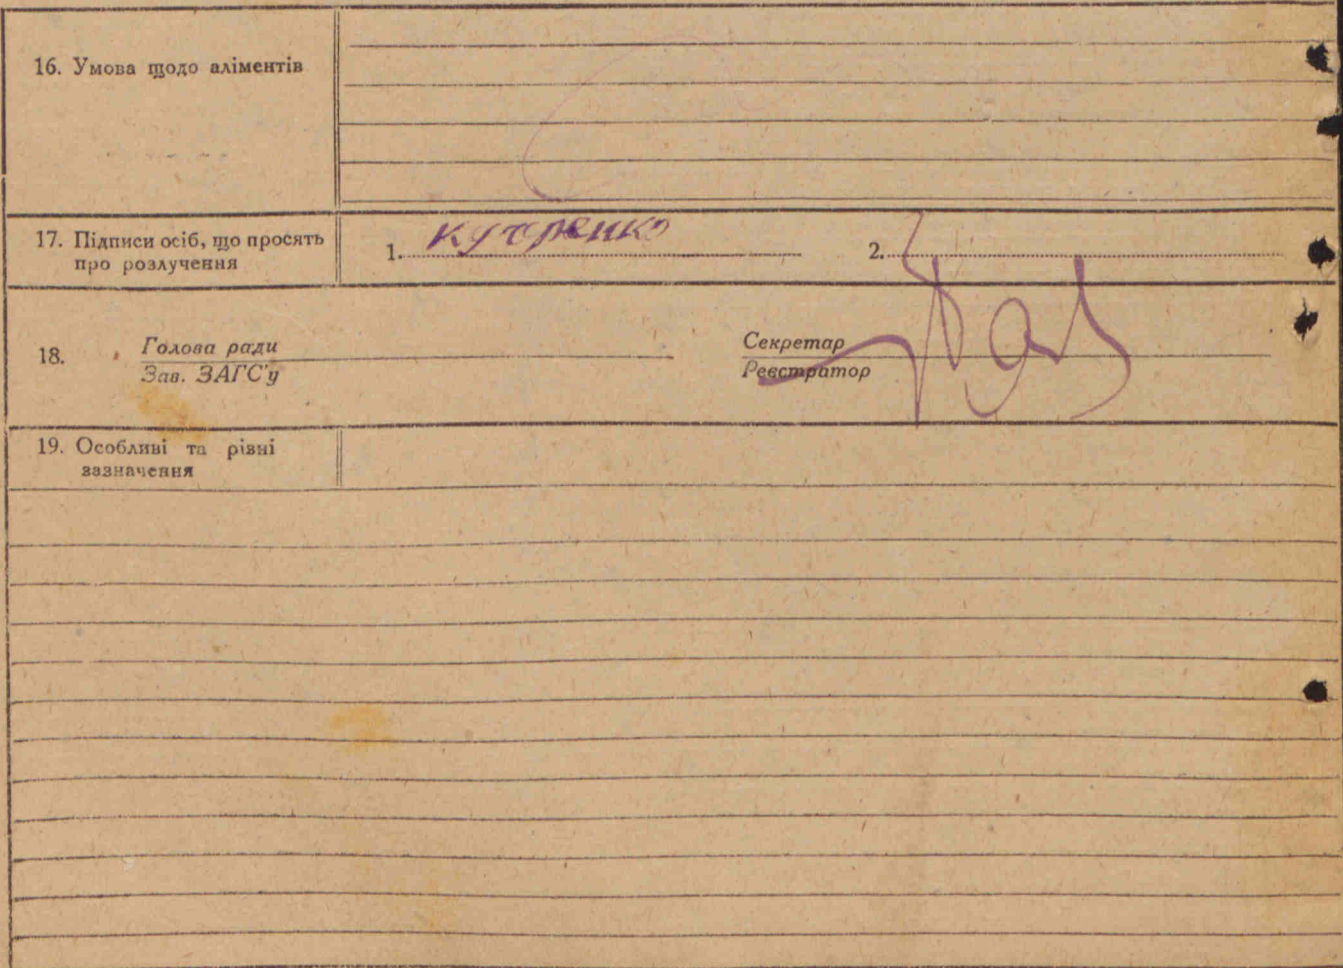 16. Умова щодо аліментів
17. Підписи осіб, що просять
про розлучення
1.
2.
18.
Голова ради
Зав. ЗАГС'у
Секретар
Реєстратор
19. Особливі та рівні
зазначення